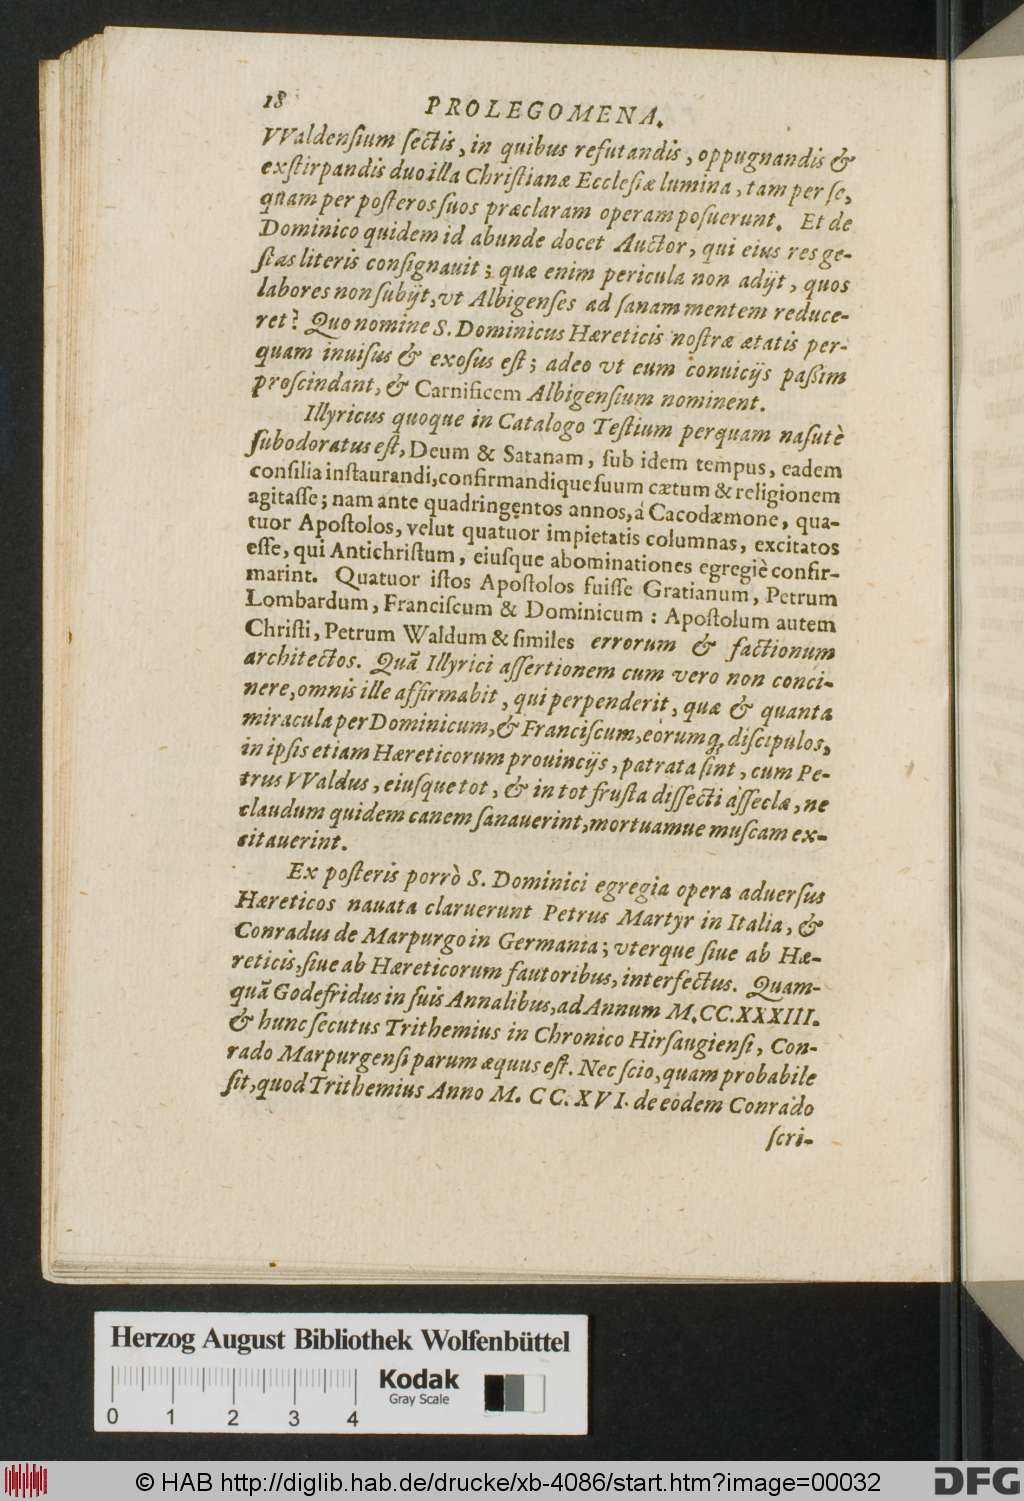 18 PROLEGOMENA.
VValdenſium ſectis, in quibus refutandis, oppugnandis &
exſtirpandis duo illa Chriſtianæ Eccleſiæ lumina, tam per ſe,
quam per poſteros ſuos præclaram operam poſuerunt. Et de
Dominico quidem id abunde docet Auctor, qui eius res ge-
ſtas literis conſignauit; quæ enim pericula non adijt, quos
labores non ſubijt, vt Albigenſes ad ſanam mentem reduce-
ret? Quo nomine S. Dominicus Hæreticis noſtræ ætatis per-
quam inuiſus & exoſus eſt; adeo vt eum conuicijs paßim
proſcindant, & Carnificem Albigenſium nominent.
Illyricus quoque in Catalogo Teſtium perquam naſutè
ſubodoratus eſt, Deum & Satanam, ſub idem tempus, eadem
conſilia inſtaurandi, confirmandique ſuum cætum & religionem
agitaſſe; nam ante quadringentos annos, á Cacodæmone, qua-
tuor Apoſtolos, velut quatuor impietatis columnas, excitatos
eſſe, qui Antichriſtum, eiuſque abominationes egregiè confir-
marint. Quatuor iſtos Apoſtolos fuiſſe Gratianum, Petrum
Lombardum, Franciſcum & Dominicum: Apoſtolum autem
Chriſti, Petrum Waldum & ſimiles errorum & factionum
architectos. Quã Illyrici aſſertionem cum vero non conci-
nere, omnis ille affirmabit, qui perpenderit, quæ & quanta
miracula per Dominicum, & Franciſcum, eorumq́; diſcipulos,
in ipſis etiam Hæreticorum prouincijs, patrata ſint, cum Pe-
trus VValdus, eiuſque tot, & in tot fruſta diſſecti aſſeclæ, ne
claudum quidem canem ſanauerint, mortuamue muſcam ex-
citauerint.
Ex poſteris porrò S. Dominici egregia opera aduerſus
Hæreticos nauata claruerunt Petrus Martyr in Italia, &
Conradus de Marpurgo in Germania; vterque ſiue ab Hæ-
reticis, ſiue ab Hæreticorum fautoribus, interfectus. Quam-
quã Godefridus in ſuis Annalibus, ad Annum M.CC.XXXIII.
& hunc ſecutus Trithemius in Chronico Hirſaugienſi, Con-
rado Marpurgenſi parum æquus eſt. Nec ſcio, quam probabile
ſit, quod Trithemius Anno M. CC. XVI. de eodem Conrado
ſcri-
Herzog August Bibliothek Wolfenbüttel
Kodak
Gray Scale
0 1 2 3 4
© HAB http://diglib.hab.de/drucke/xb-4086/start.htm?image=00032
DFG